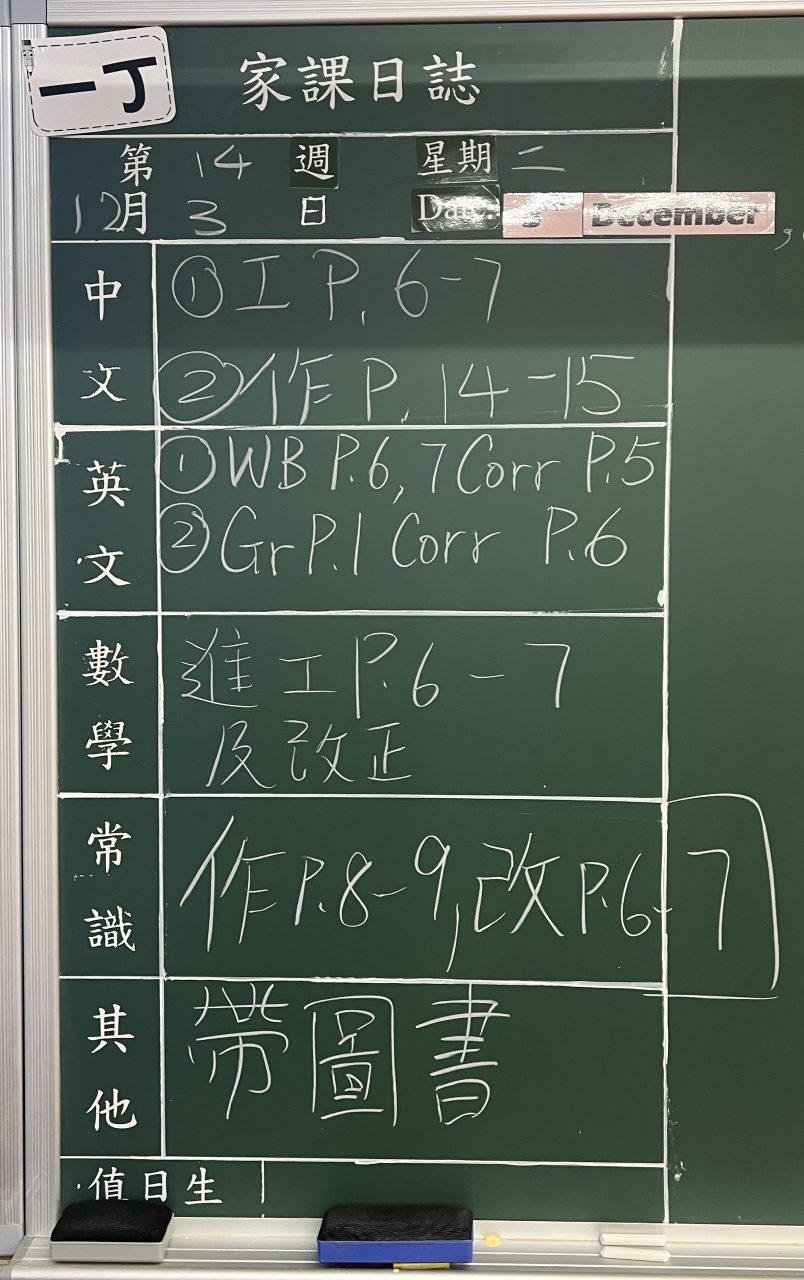 一丁
家課日誌
第 14 週 星期 二
12月 3 日 Date: 3rd December,
中文
① 工 P. 6-7
② 作 P. 14-15
英文
① WB P.6, 7 Corr P.5
② Gr P.1 Corr P.6
數學
進工P.6-7
及改正
常識
作P.8-9, 改P.6-7
其他
帶圖書
值日生